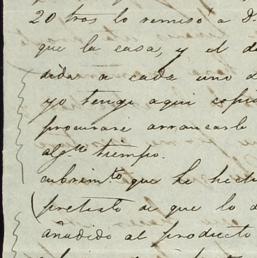 20 tros lo remiso a D
que la casa, y el d
dida a cada uno d
yo tengo aqui copia
procurare arrancarle
algⁿ tiempo.
cubrimᵗᵒ que he hech
pretesto de que lo a
añadido al producto